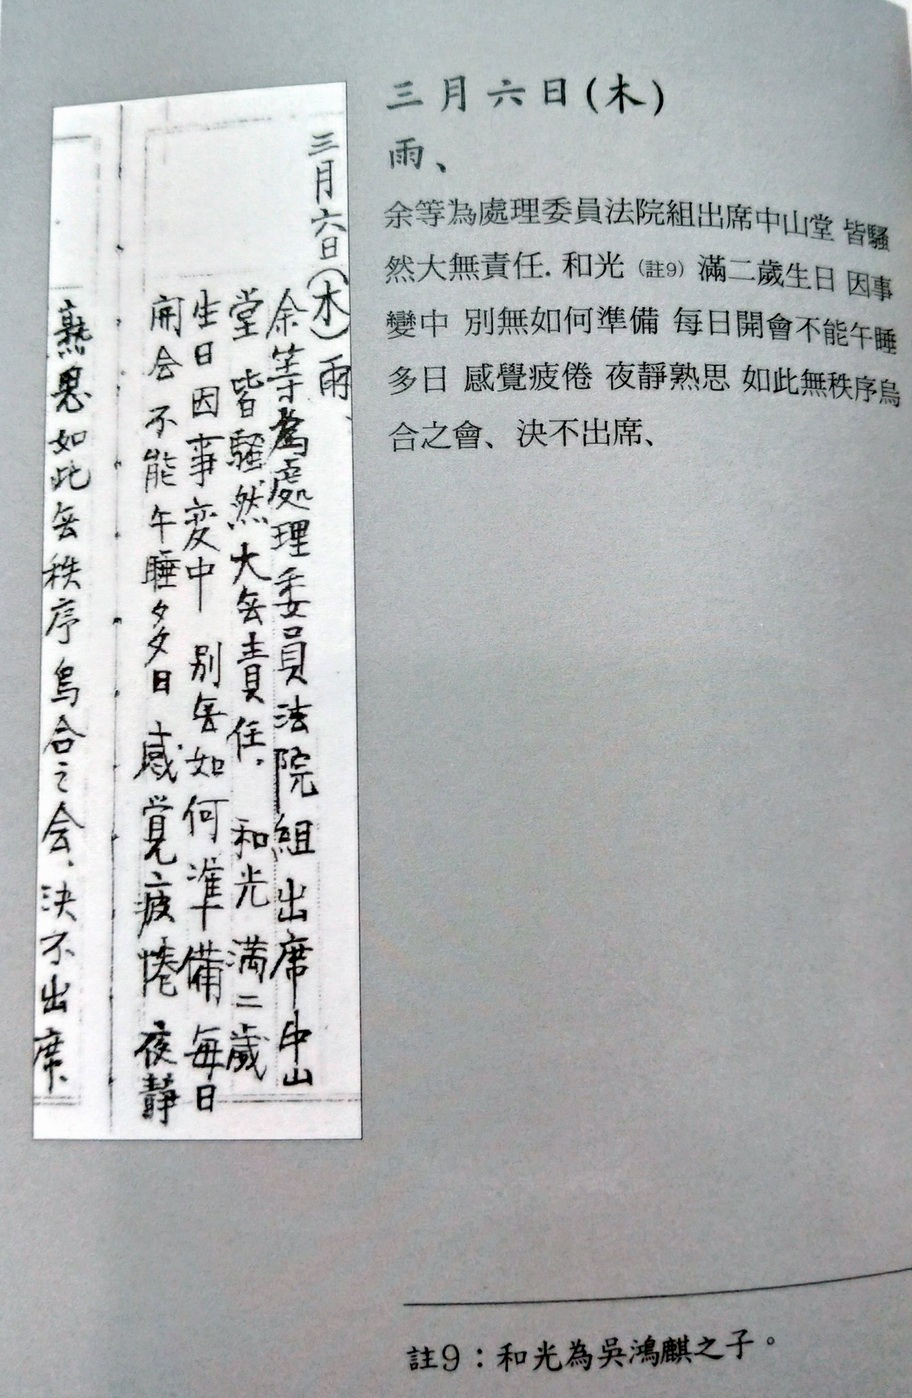 三月六日(木)
雨、
余等為處理委員法院組出席中山堂 皆騷
然大無責任. 和光 (註9) 滿二歲生日 因事
變中 別無如何準備 每日開會不能午睡
多日 感覺疲倦 夜靜熟思 如此無秩序烏
合之會、決不出席、
三月六日(木)雨、
余等為處理委員法院組出席中山
堂 皆騷然大無責任. 和光満二歲
生日因事変中 別無如何準備每日
開会不能午睡多日 感覚疲惓 夜靜
熟思如此無秩序烏合之会、決不出席、
註9：和光為吳鴻麒之子。